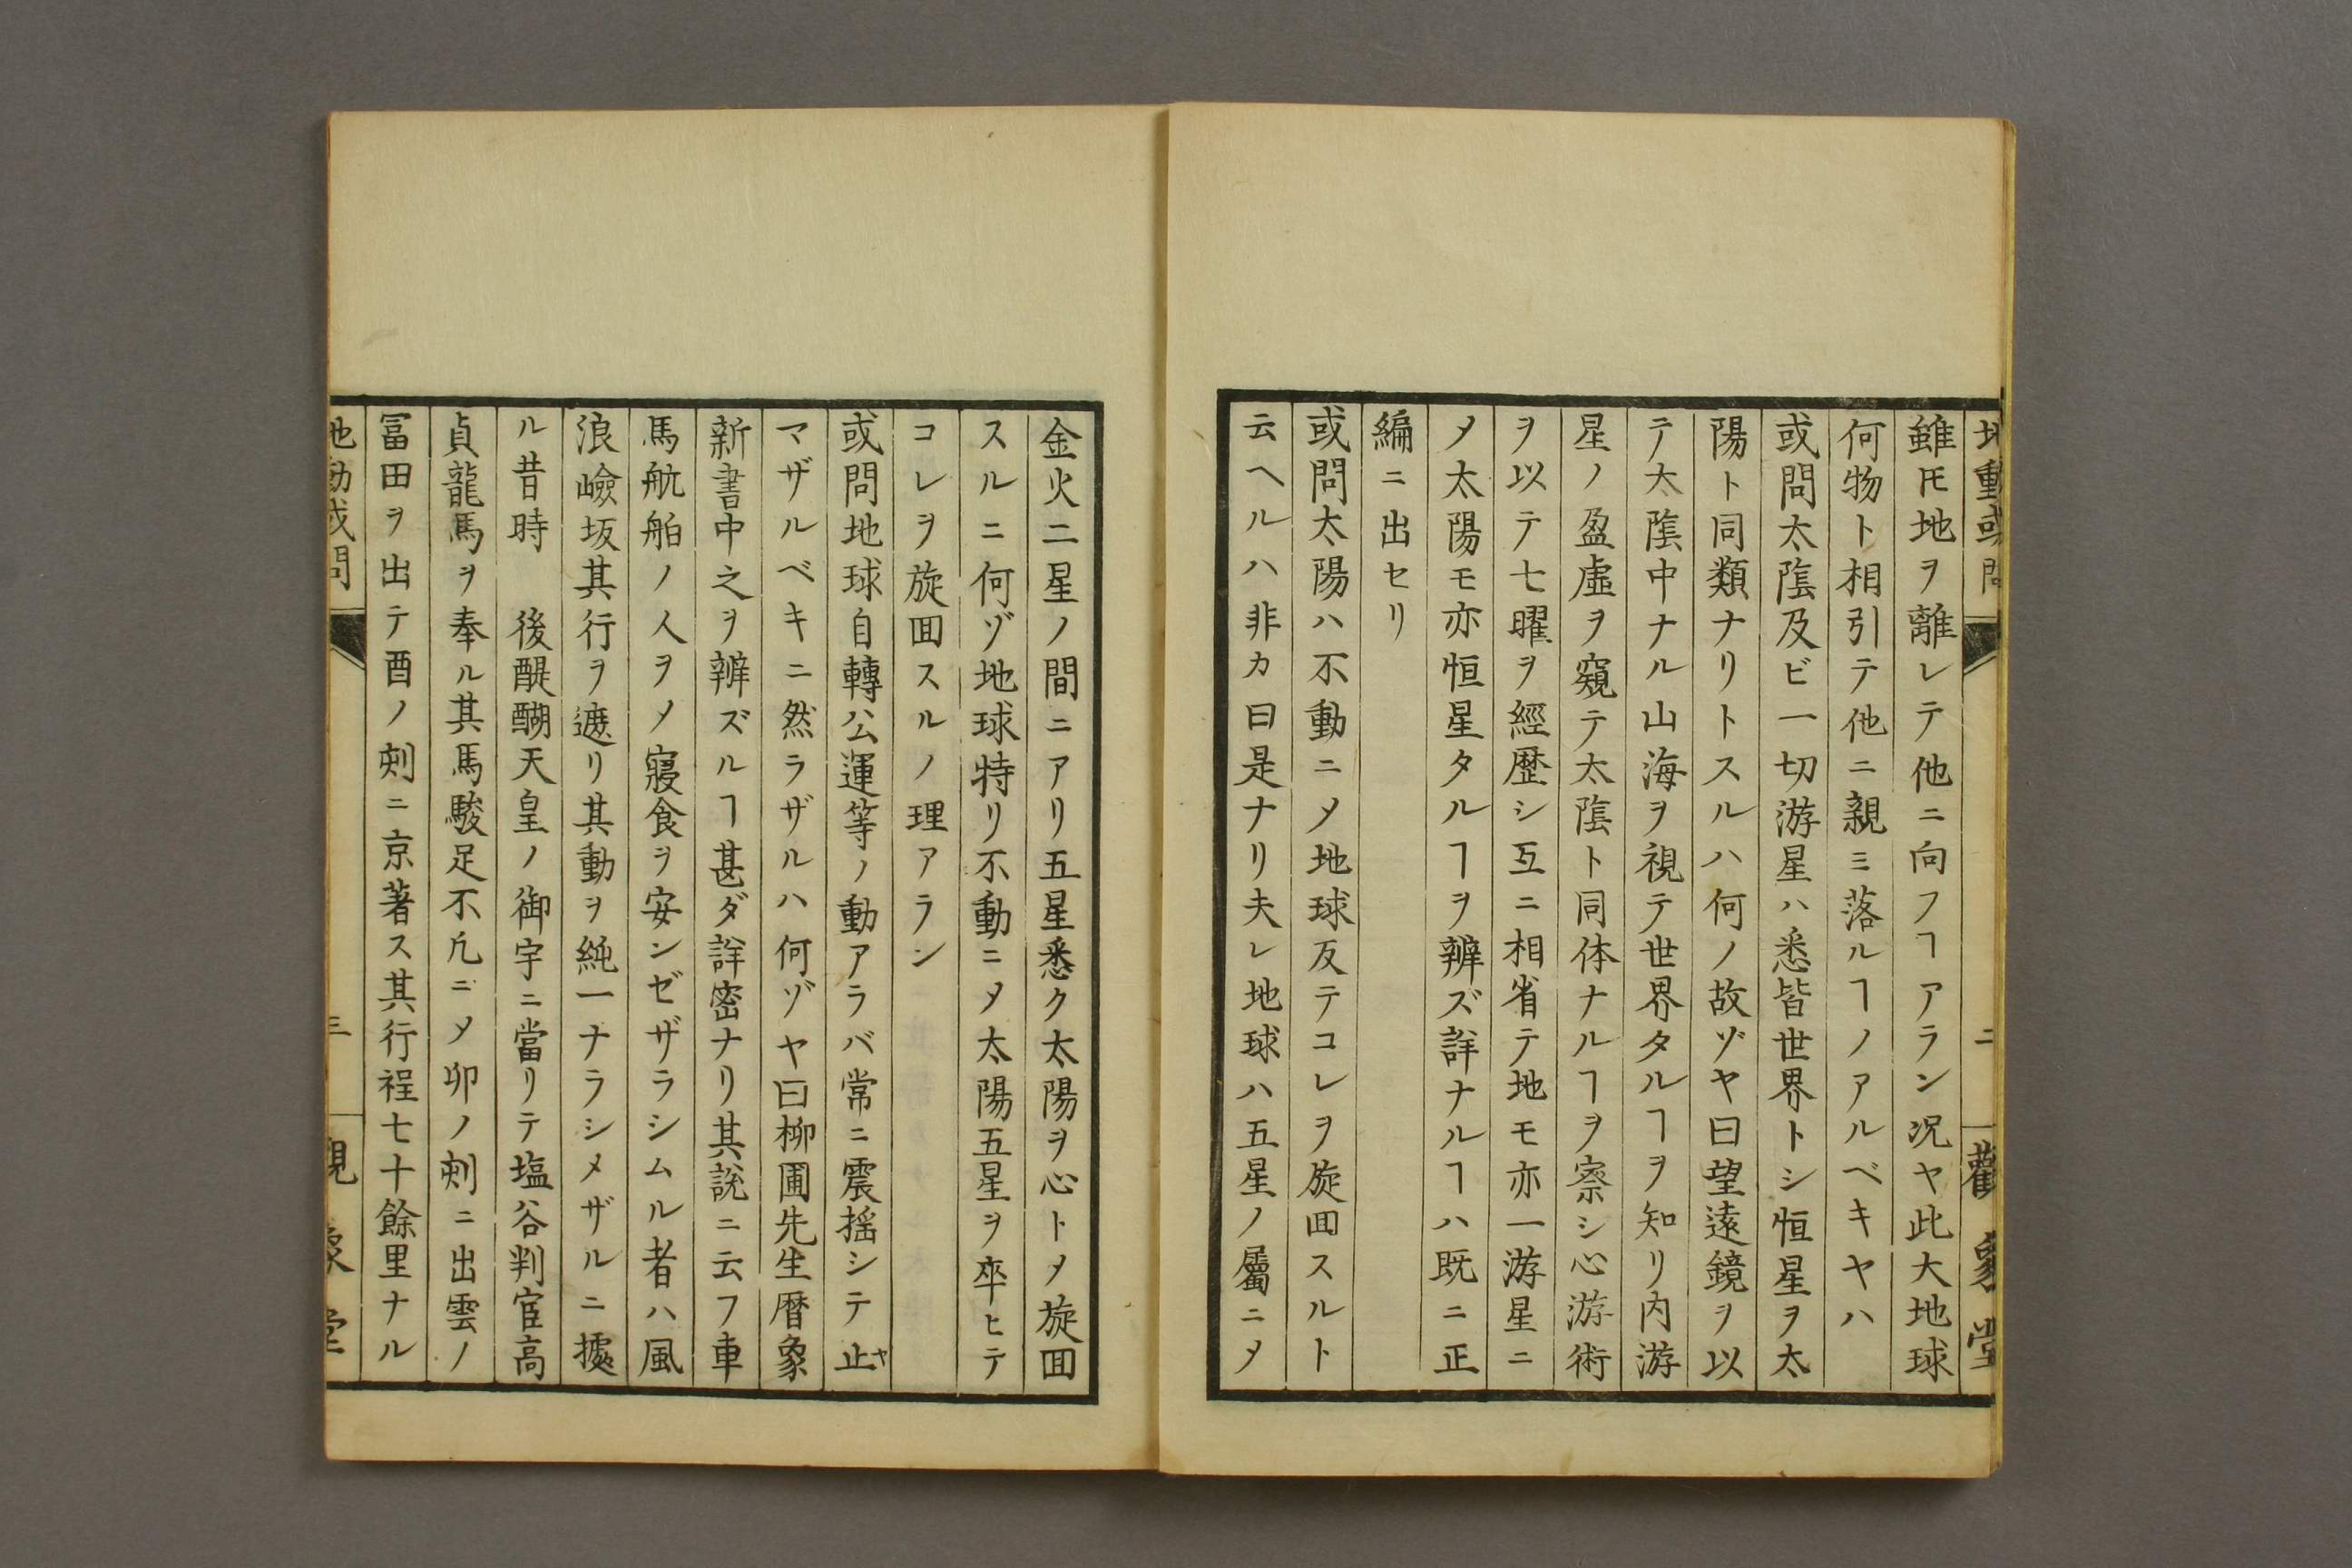 地動或問 二 觀象堂
雖𪜈地ヲ離レテ他ニ向フヿアラン况ヤ此大地球
何物ト相引テ他ニ親ミ落ルヿノアルベキヤハ
或問太陰及ビ一切游星ハ悉皆世界トシ恒星ヲ太
陽ト同類ナリトスルハ何ノ故ゾヤ曰望遠鏡ヲ以
テ太陰中ナル山海ヲ視テ世界タルヿヲ知リ内游
星ノ盈虚ヲ窺テ太陰ト同体ナルヿヲ察シ心游術
ヲ以テ七曜ヲ經歴シ互ニ相省テ地モ亦一游星ニ
〆太陽モ亦恒星タルヿヲ辨ズ詳ナルヿハ既ニ正
編ニ出セリ
或問太陽ハ不動ニ〆地球反テコレヲ旋囬スルト
云ヘルハ非カ曰是ナリ夫レ地球ハ五星ノ屬ニ〆
金火二星ノ間ニアリ五星悉ク太陽ヲ心ト〆旋囬
スルニ何ゾ地球特リ不動ニ〆太陽五星ヲ卒ヒテ
コレヲ旋囬スルノ理アラン
或問地球自轉公運等ノ動アラバ常ニ震揺シテ止ヤ
マザルベキニ然ラザルハ何ゾヤ曰柳圃先生暦象
新書中之ヲ辨ズルヿ甚ダ詳密ナリ其説ニ云フ車
馬航舶ノ人ヲ〆寢食ヲ安ンゼザラシムル者ハ風
浪嶮坂其行ヲ遮リ其動ヲ純一ナラシメザルニ據
ル昔時 後醍醐天皇ノ御宇ニ當リテ塩谷判官高
貞龍馬ヲ奉ル其馬駿足不凡ニ〆卯ノ刻ニ出雲ノ
冨田ヲ出テ酉ノ刻ニ京著ス其行程七十餘里ナル
地動或問 三 觀象堂